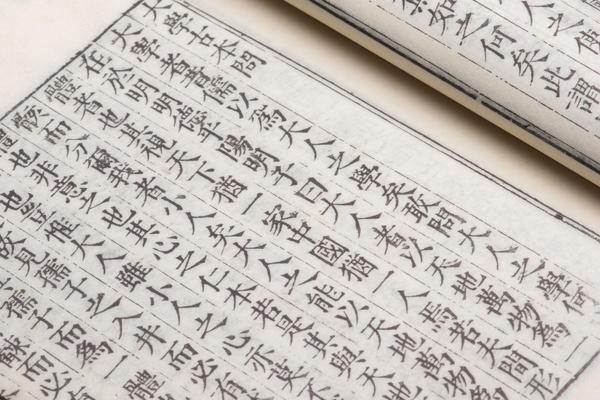 之使
如之何矣此謂
大學古本問
大學者昔儒以爲大人之學矣敢問大人之學何
在於明明德乎陽明子曰大人者以天地萬物爲一
體者也其視天下猶一家中國猶一人焉若夫間形
骸而分爾我者小人矣大人之能以天地萬物爲
體也非意之也其心之仁本若是其與天地
也豈惟大人雖小人之心亦莫不
故見孺子之入井而必有
孺子而爲一體
觫而必